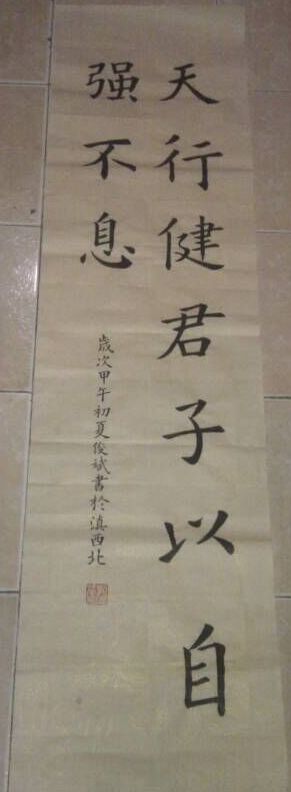 天行健君子以自
强不息
歲次甲午初夏俊斌書於滇西北